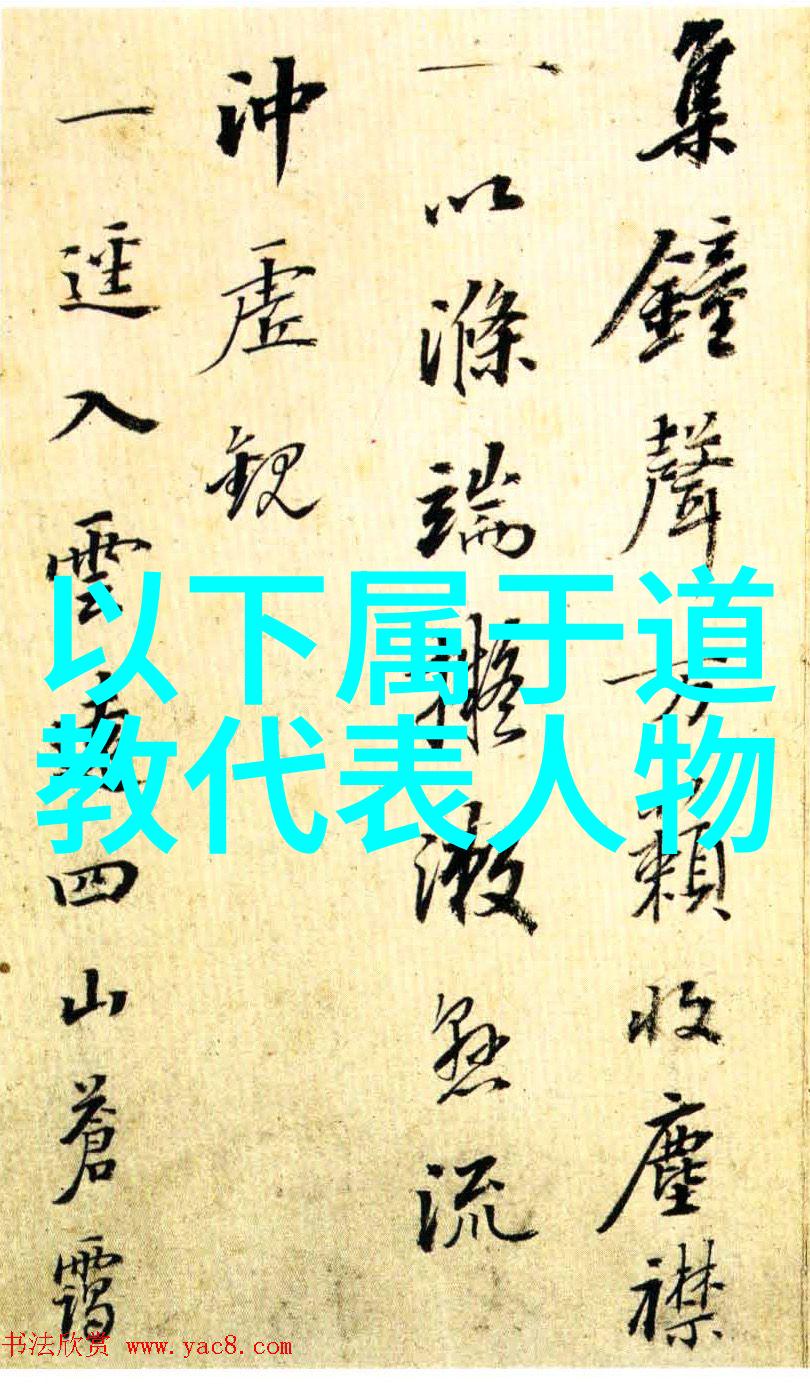 集鐘聲万籟收塵襟
一以滌端擬漱懸流
沖虛觀
一逕入雲蘿四山蒼靄
以下属于道
教代表人物
书法欣赏 www.yac8.com